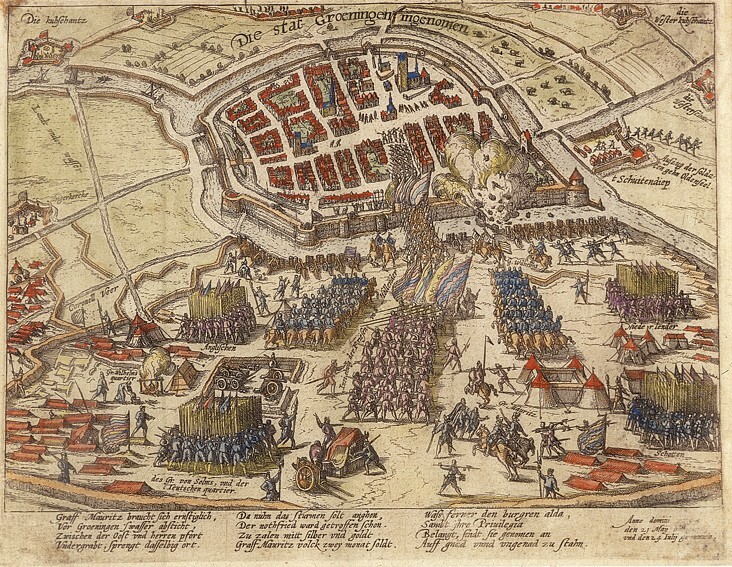 Die kuhschantz
Die stat Groeningen ingenomen
die
Vester kuhschantz
't Schuitendiep
Englischen
quartier
des Gr. von Solms, und der
Teutschen quartier.
Schotten
Graff Mauritz braucht sich ernstiglich,
Vor Groeningen s wasser absticht,
Zwischen der Oost vnd herren pfort
Vndergrabt, sprengt dasselbig ort.
Da nuhn das sturmen solt angehn,
Der nothfried ward getroffen schon
Zu zalen mitt silber vnd goldt
Graff Mauritz volck zwey monat soldt.
Wass ferner den burgren alda,
Sambt ihre Privilegia
Belangt, sindt sie genomen an
Auff gnad vnnd vngenad zu stahn.
Anno domini
den 23 May
vnd den 24 Iulij